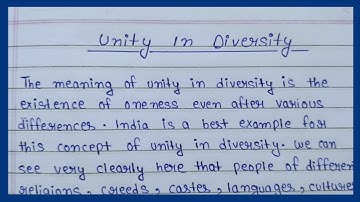 Unity In Diversity
The meaning of unity in diversity is the
existence of oneness even after various
differences. India is a best example for
this concept of unity in diversity. we can
see very clearly here that people of differen
religions, creeds, castes, languages, cultures